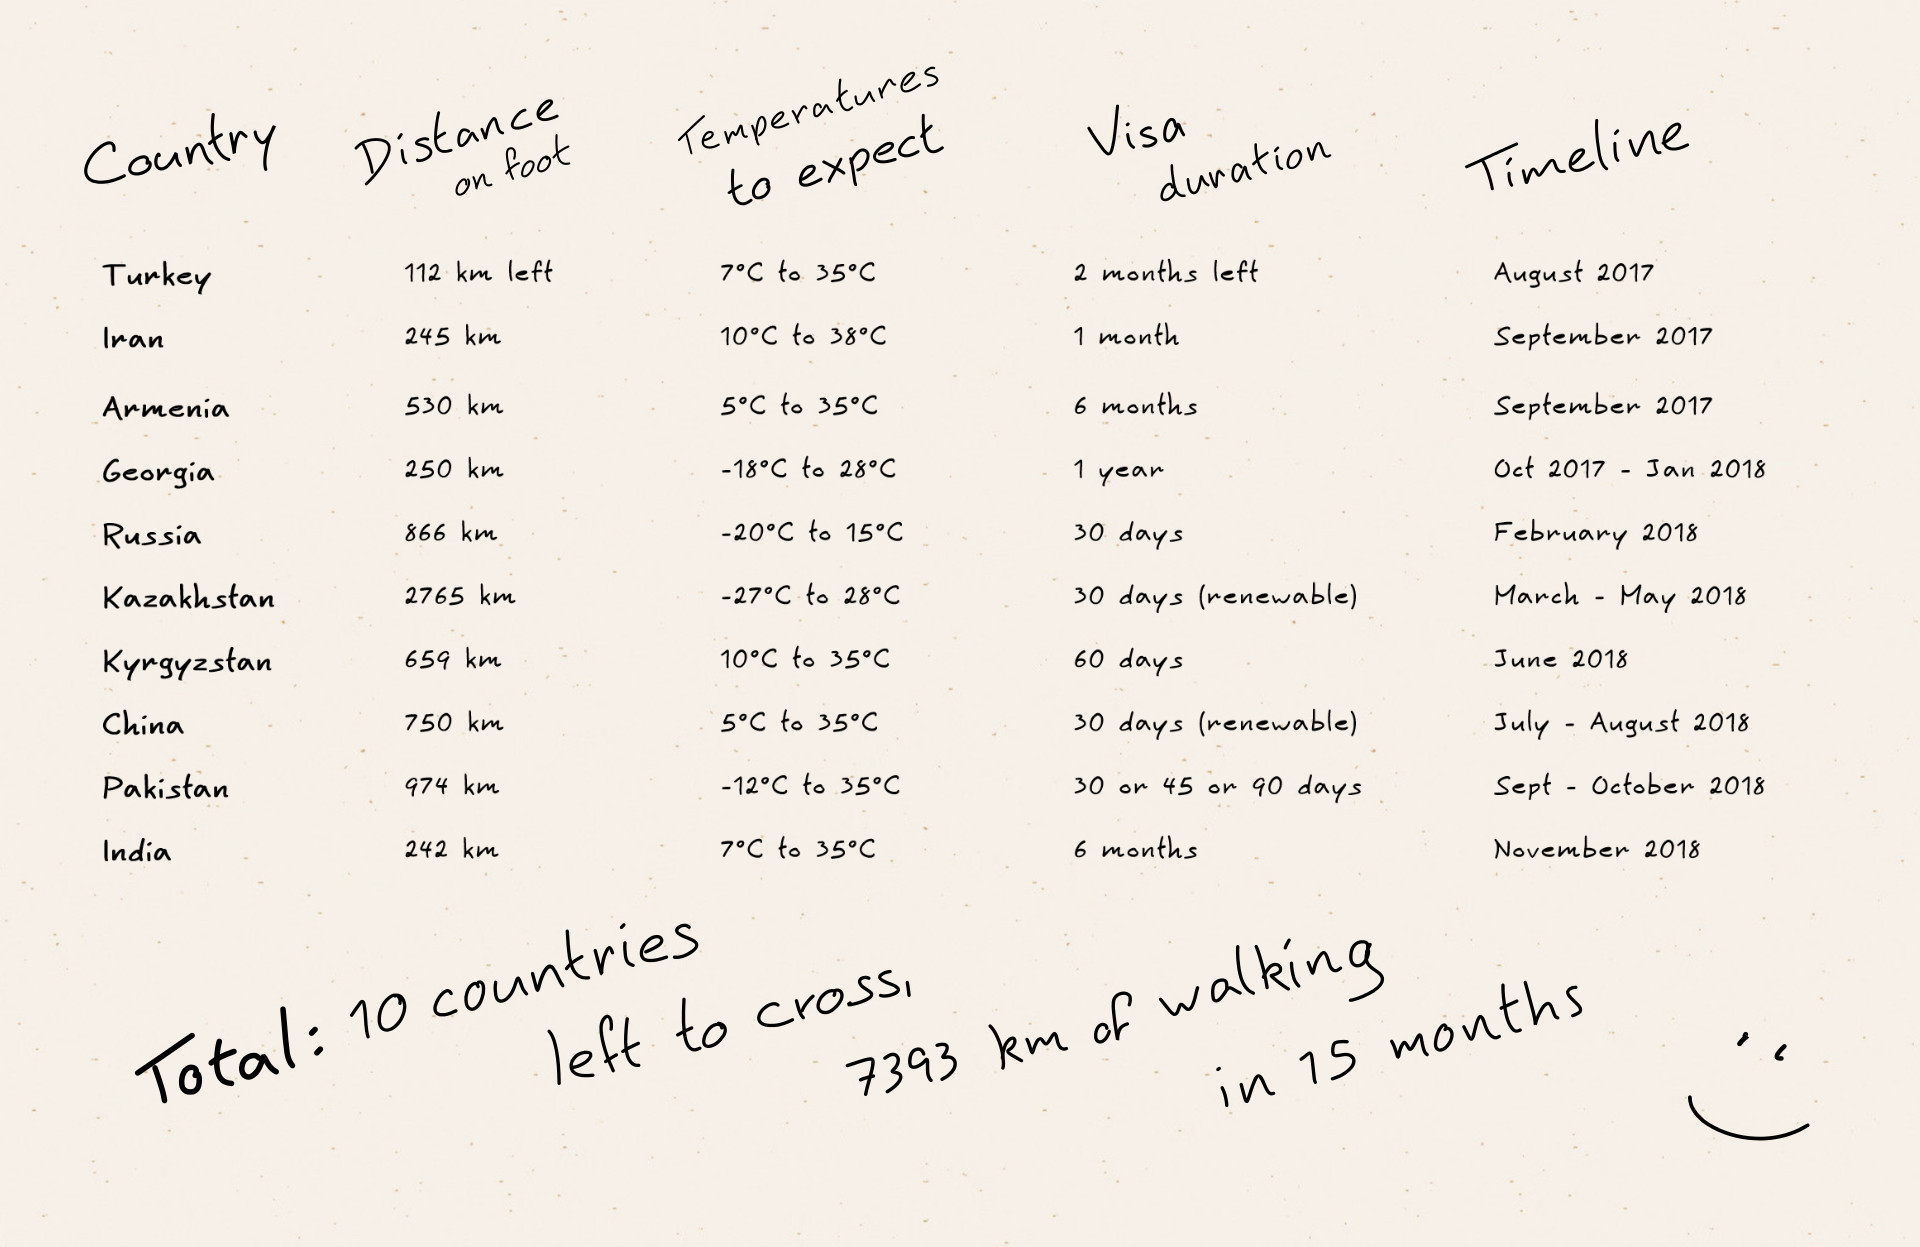 Country Distance on foot Temperatures to expect Visa duration Timeline
Turkey 112 km left 7°C to 35°C 2 months left August 2017
Iran 245 km 10°C to 38°C 1 month September 2017
Armenia 530 km 5°C to 35°C 6 months September 2017
Georgia 250 km -18°C to 28°C 1 year Oct 2017 - Jan 2018
Russia 866 km -20°C to 15°C 30 days February 2018
Kazakhstan 2765 km -27°C to 28°C 30 days (renewable) March - May 2018
Kyrgyzstan 659 km 10°C to 35°C 60 days June 2018
China 750 km 5°C to 35°C 30 days (renewable) July - August 2018
Pakistan 974 km -12°C to 35°C 30 or 45 or 90 days Sept - October 2018
India 242 km 7°C to 35°C 6 months November 2018
Total: 10 countries
left to cross,
7393 km of walking
in 15 months